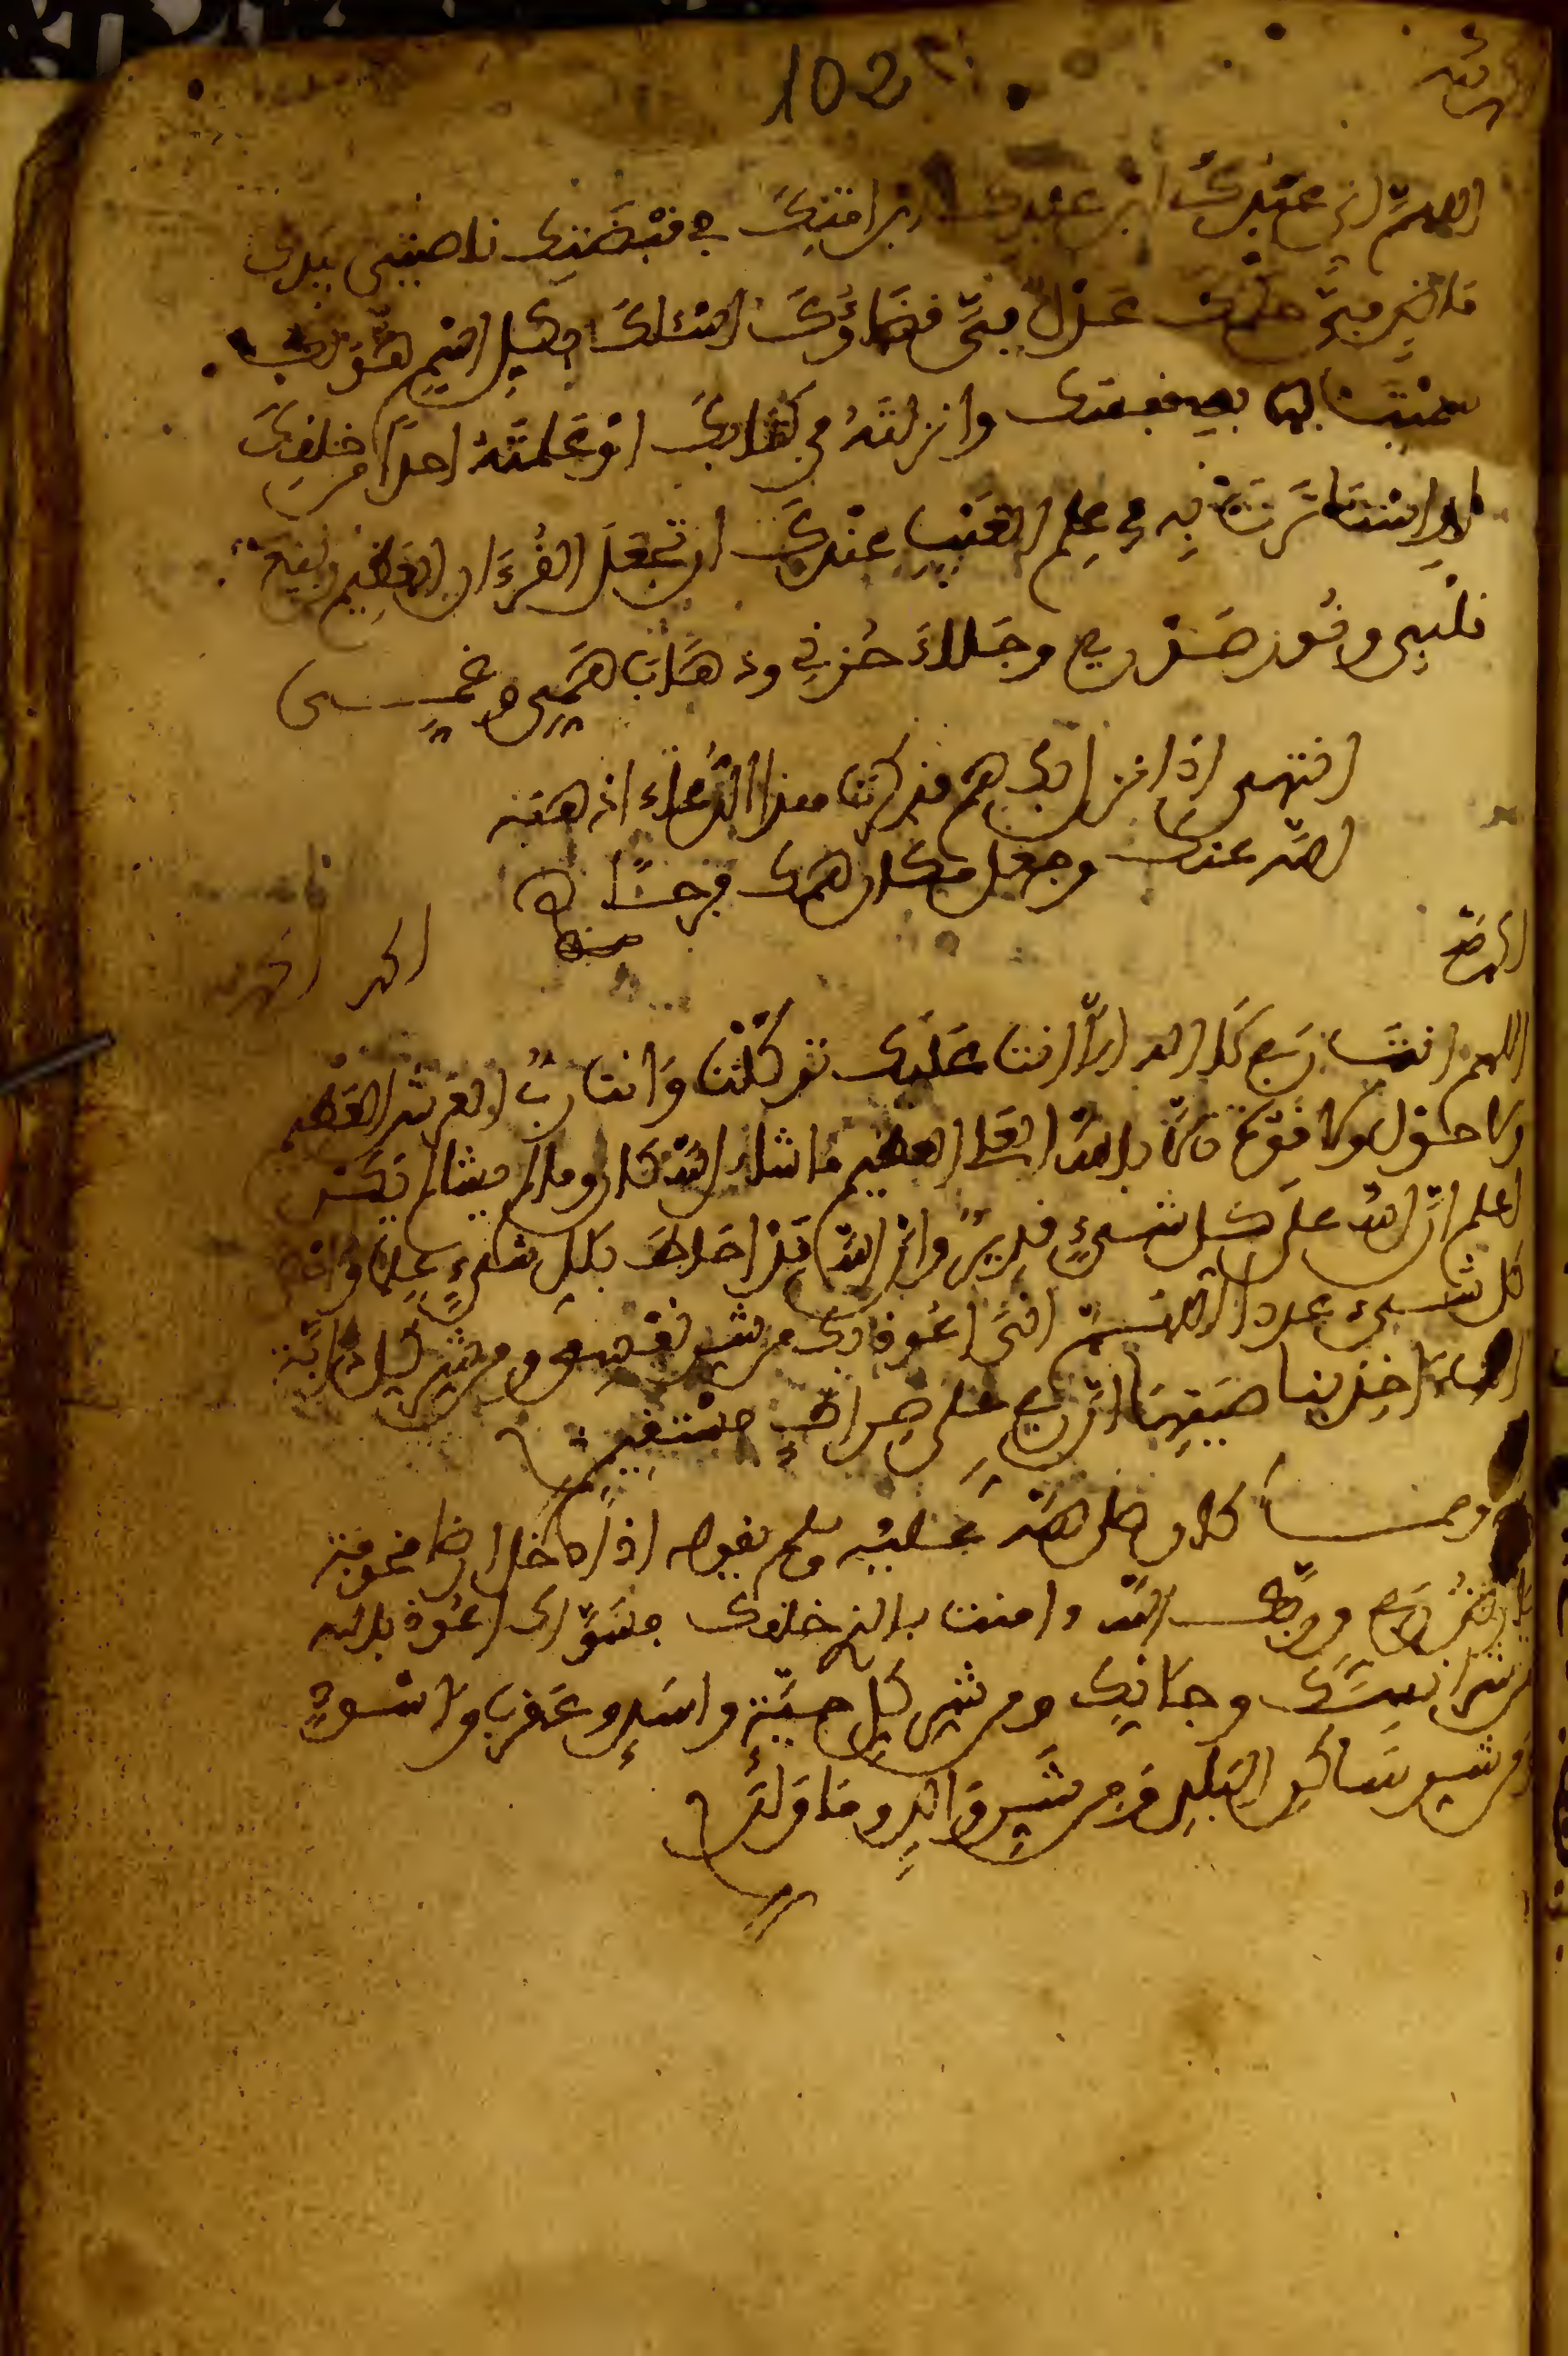 102
اللهم اني عبدك ابن عبدك ابن امتك في قبضتك ناصيتي بيدك
ماض في حكمك عدل في قضاؤك اسئلك بكل اسم هو لك
سميت به نفسك وانزلته في كتابك او علمته احدا من خلقك
او استاثرت به في علم الغيب عندك ان تجعل القرءان العظيم ربيع
قلبي ونور صدري وجلاء حزني وذهاب همي وغمي
انتهى اذا نزل بك هم فذكرت هذا الدعاء اذهبه
الله عنك وجعل مكان همك فرحا
اللهم انت ربي لا اله الا انت عليك توكلت وانت رب العرش العظيم
ولا حول ولا قوة الا بالله العلي العظيم ما شاء الله كان وما لم يشا لم يكن
اعلم ان الله على كل شيء قدير وان الله قد احاط بكل شيء علما و
كل شيء عددا اللهم اني اعوذ بك من شر نفسي ومن شر كل دابة
انت ءاخذ بناصيتها ان ربي على صراط مستقيم
كان صلى الله عليه وسلم يقول اذا دخل ارضا مخوفة
ربي وربك الله وامنت بالذي خلقك فسواك اعوذ بالله
من شر انسك وجانك ومن شر كل حية واسد وعقرب واسود
ومن شر ساكن البلد ومن شر والد وما ولد